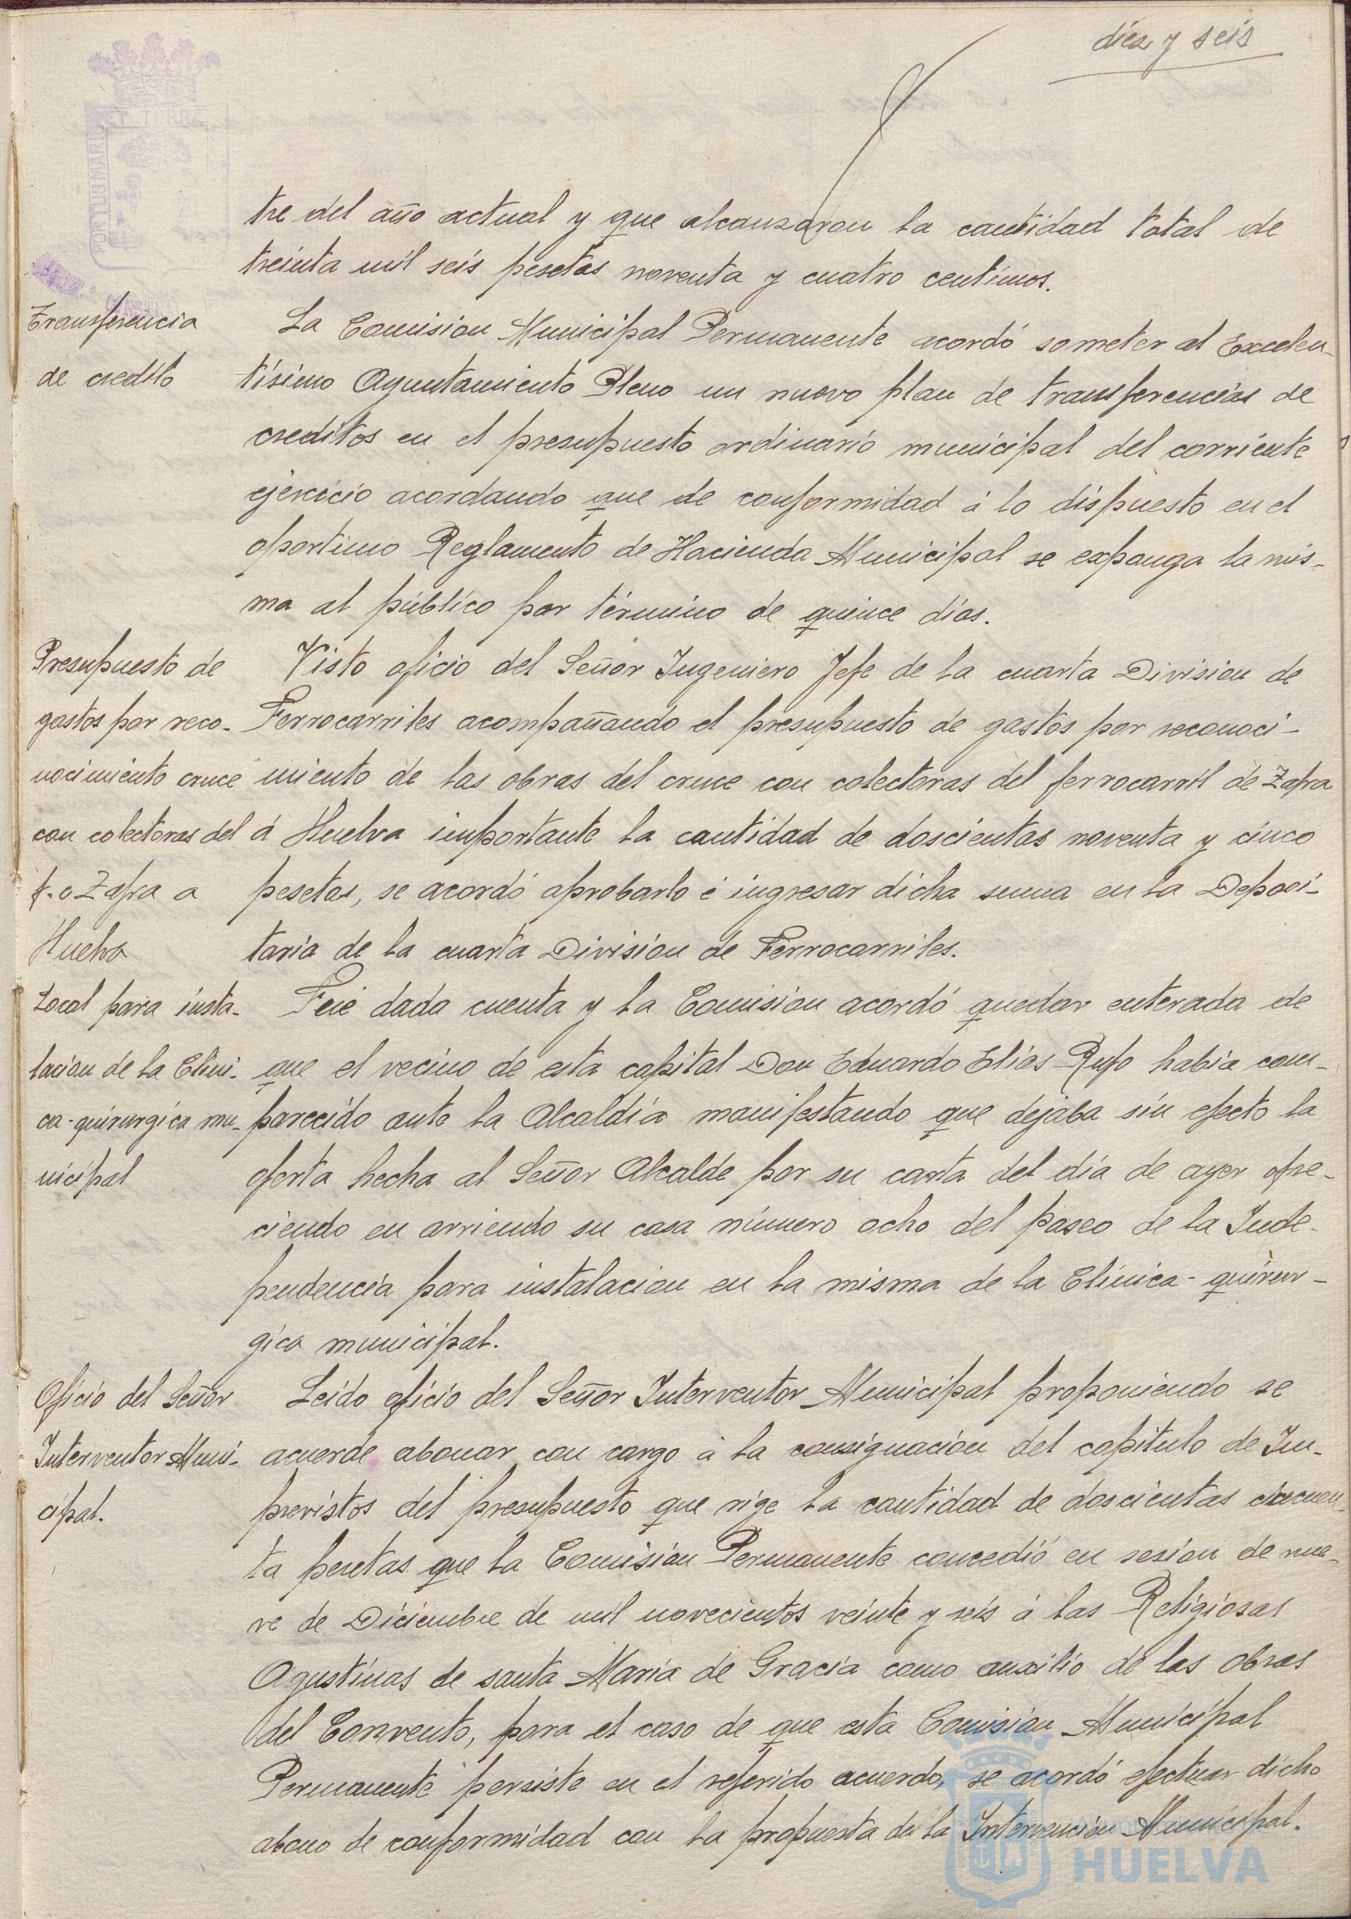 diez y seis
PORTUS MARIS ET TERRÆ
tre del año actual y que alcanzaron la cantidad total de
treinta mil seis pesetas noventa y cuatro centimos.
Transferencia
de credito
La Comision Municipal Permanente acordó someter al Excelen-
tísimo Ayuntamiento Pleno un nuevo plan de transferencias de
creditos en el presupuesto ordinario municipal del corriente
ejercicio acordando que de conformidad á lo dispuesto en el
oportuno Reglamento de Hacienda Municipal se exponga la mis-
ma al público por término de quince días.
Presupuesto de
gastos por reco-
nocimiento cruce
con colectoras del
f. c Zafra a
Huelva
Visto oficio del Señor Ingeniero Jefe de la cuarta Division de
Ferrocarriles acompañando el presupuesto de gastos por reconoci-
miento de las obras del cruce con colectoras del ferrocarril de Zafra
á Huelva importante la cantidad de doscientas noventa y cinco
pesetas, se acordó aprobarlo é ingresar dicha suma en la Deposi-
taria de la cuarta Division de Ferrocarriles.
Local para insta-
lacion de la Clini-
ca-quirurgica mu-
nicipal
Fué dada cuenta y la Comision acordó quedar enterada de
que el vecino de esta capital Don Eduardo Elias Rufo habia com-
parecido ante la Alcaldía manifestando que dejaba sin efecto la
oferta hecha al Señor Alcalde por su carta del día de ayer ofre-
ciendo en arriendo su casa número ocho del paseo de la Inde-
pendencia para instalacion en la misma de la Clínica-quirur-
gica municipal.
Oficio del Señor
Interventor Muni-
cipal.
Leido oficio del Señor Interventor Municipal proponiendo se
acuerde abonar con cargo á la consignacion del capitulo de Im-
previstos del presupuesto que rige la cantidad de doscientas cincuen-
ta pesetas que la Comision Permanente concedió en sesion de nue-
ve de Diciembre de mil novecientos veinte y seis á las Religiosas
Agustinas de santa María de Gracia como auxilio de las obras
del Convento, para el caso de que esta Comision Municipal
Permanente persiste en el referido acuerdo, se acordó efectuar dicho
abono de conformidad con la propuesta de la Intervencion Municipal.
HUELVA